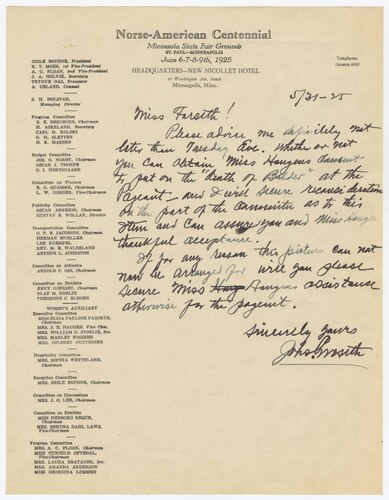 Norse-American Centennial
Minnesota State Fair Grounds
ST. PAUL—MINNEAPOLIS
June 6-7-8-9th, 1925
HEADQUARTERS—NEW NICOLLET HOTEL
Washington Ave. South
Minneapolis, Minn.
Telephone:
Geneva
GISLE BOTHNE, President
N. T. MOEN, 1st Vice-President
A. C. FLOAN, 2nd Vice-President
J. A. HOLVIK, Secretary
TRYGVE OAS, Treasurer
A. UELAND, Counsel
S. H. HOLSTAD,
Managing Director
Program Committee
H. ASKELAND, Secretary
CARL D. KOLSET
O. H. SLETTEN
H. K. MADSEN
Budget Committee
JOS. G. NORBY, Chairman
OSCAR J. THORPE
O. I. HERTSGAARD
Committee on Finance
E. G. QUAMME, Chairman
L. W. Vice-Chairman
Publicity Committee
OSCAR ARNESON, Chairman
GUSTAV B. WOLLAN, Director
Transportation Committee
O. P. B. JACOBSON, Chairman
HERMAN MUELLER
LEE KUEMPEL
REV. M. E. WALDELAND
ARTHUR L. JOHNSTON
Committee on Athletics
ARNOLD C. OSS, Chairman
Committee on Exhibits
KNUT GJERSET, Chairman
OLAF M. NORLIE
THEODORE C. BLEGEN
WOMEN'S AUXILIARY
Executive Committee
MISS ELISA PAULINE FARSETH, Chairman
MRS. J. E. HAUGEN, Vice Chm.
MRS. WILLIAM O. STORLIE, Sec.
MRS. MANLEY FOSSEEN
MRS. GILBERT GUTTERSEN
Hospitality Committee
MRS. SOPHIA WETTELAND, Chairman
Reception Committee
MRS. GISLE BOTHNE, Chairman
Committee on Concessions
MRS. J. O. LEE, Chairman
Committee on Exhibits
MISS HERBORG REQUE, Chairman
MRS. BERTHA DAHL LAWS, Vice-Chairman
Program Committee
MRS. A. C. FLOAN, Chairman
MISS GUNHILD OFTEDAL, Vice-Chairman
MRS. LAURA BRATAGER, Sec.
MRS. AMANDA ANDERSON
MISS GEORGINA LOMMEN
5/31-25
Miss Farseth!
Please advise me definitely not
later than Tuesday Eve. whether or not
you can obtain Miss Haugens consent
to put on the "death of Balder" at the
Pageant – and I will secure reconsideration
on the part of the Committee as to this
item and can assure you and Miss Haugen
thankful acceptance.
If for any reason this picture can not
now be arranged for will you please
secure Miss Haugens assistance
otherwise for the pageant.
Sincerely yours